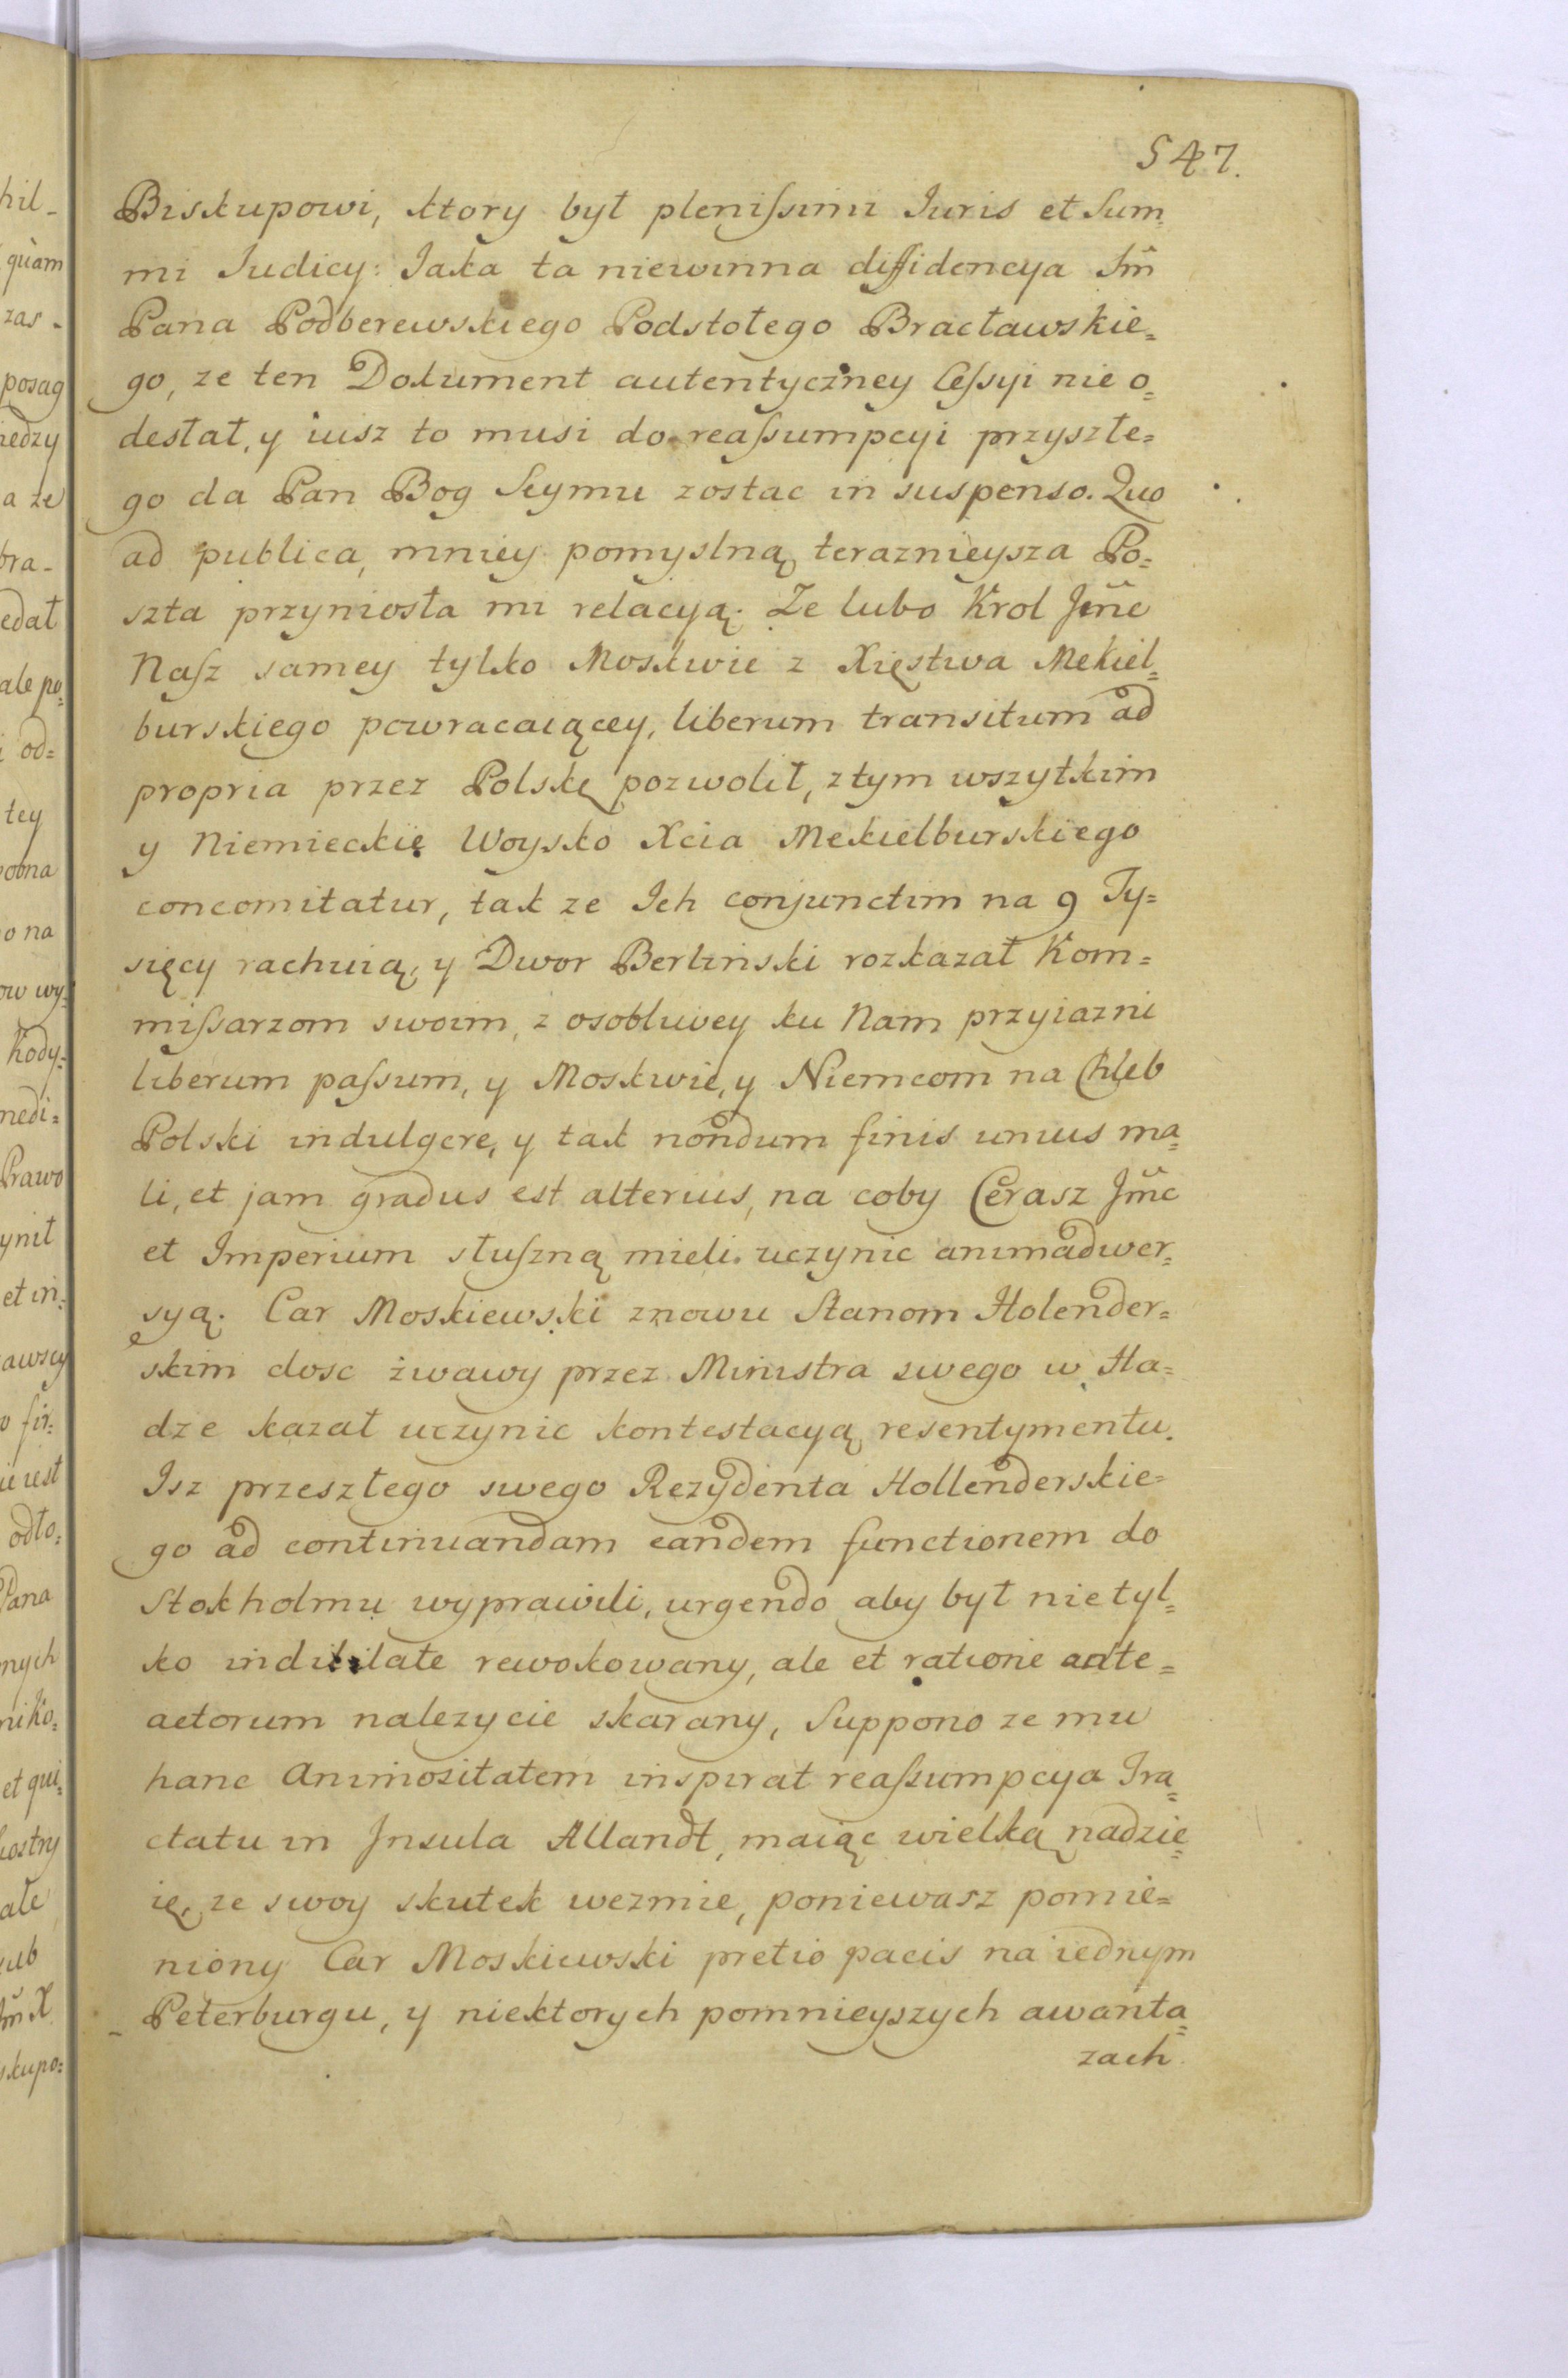 547.
Biskupowi, ktory był plenissimi Iuris et Sum
mi Iudicy: Iaka ta niewinna diffidencya Im̃
Pana Podberewskiego Podstołego Bracławskie=
go, ze ten Dokument autentyczney Cessyi nie o=
desłał, y iusz to musi do reassumpcyi przyszłe=
go da Pan Bog Seymu zostac in suspenso. Quo
ad publica, mniey pomyslną teraznieysza Po=
szta przyniosła mi relacyą. Ze lubo Krol Jm̃c
Nasz samey tylko Moskwie z Xięstwa Mekiel=
burskiego powracaiącey, liberum transitum ad
propria przez Polskę pozwolił, z tym wszytkim
y Niemieckie Woysko Xcia Mekielburskiego
concomitatur, tak ze Ich conjunctim na 9 Ty=
sięcy rachuią, y Dwor Berlinski rozkazał Kom=
missarzom swoim, z osobliwey ku Nam przyiazni
liberum passum, y Moskwie, y Niemcom na Chleb
Polski indulgere, y tak nondum finis unius ma=
li, et jam gradus est alterius, na coby Cerasz Jm̃c
et Imperium słuszną mieli uczynic animadwer=
syą. Car Moskiewski znowu Stanom Holender=
skim dosc żwawy przez Ministra swego w Ha=
dze kazał uczynic kontestacyą resentymentu.
Isz przeszłego swego Rezydenta Hollenderskie=
go ad continuandam eandem functionem do
Stokholmu wyprawili, urgendo aby był nie tyl=
ko indilate rewokowany, ale et ratione ante=
actorum nalezycie skarany, Suppono ze mu
hanc Animositatem inspirat reassumpcya Tra=
ctatu in Insula Allandt, maiąc wielką nadzie=
ię, ze swoy skutek wezmie, poniewasz pomie=
niony Car Moskiewski pretio pacis na iednym
Peterburgu, y niektorych pomnieyszych awanta=
zach
hil-
quàm
zas-
posag
iedzy
a ze
bra-
edał
ale po=
i od=
tey
o na
ow wy=
Kody=
medi=
Prawo
ynił
et in=
awscy
o fir=
odło=
Pana
nych
niko=
et qui=
ale
Im̃ X
skupo=